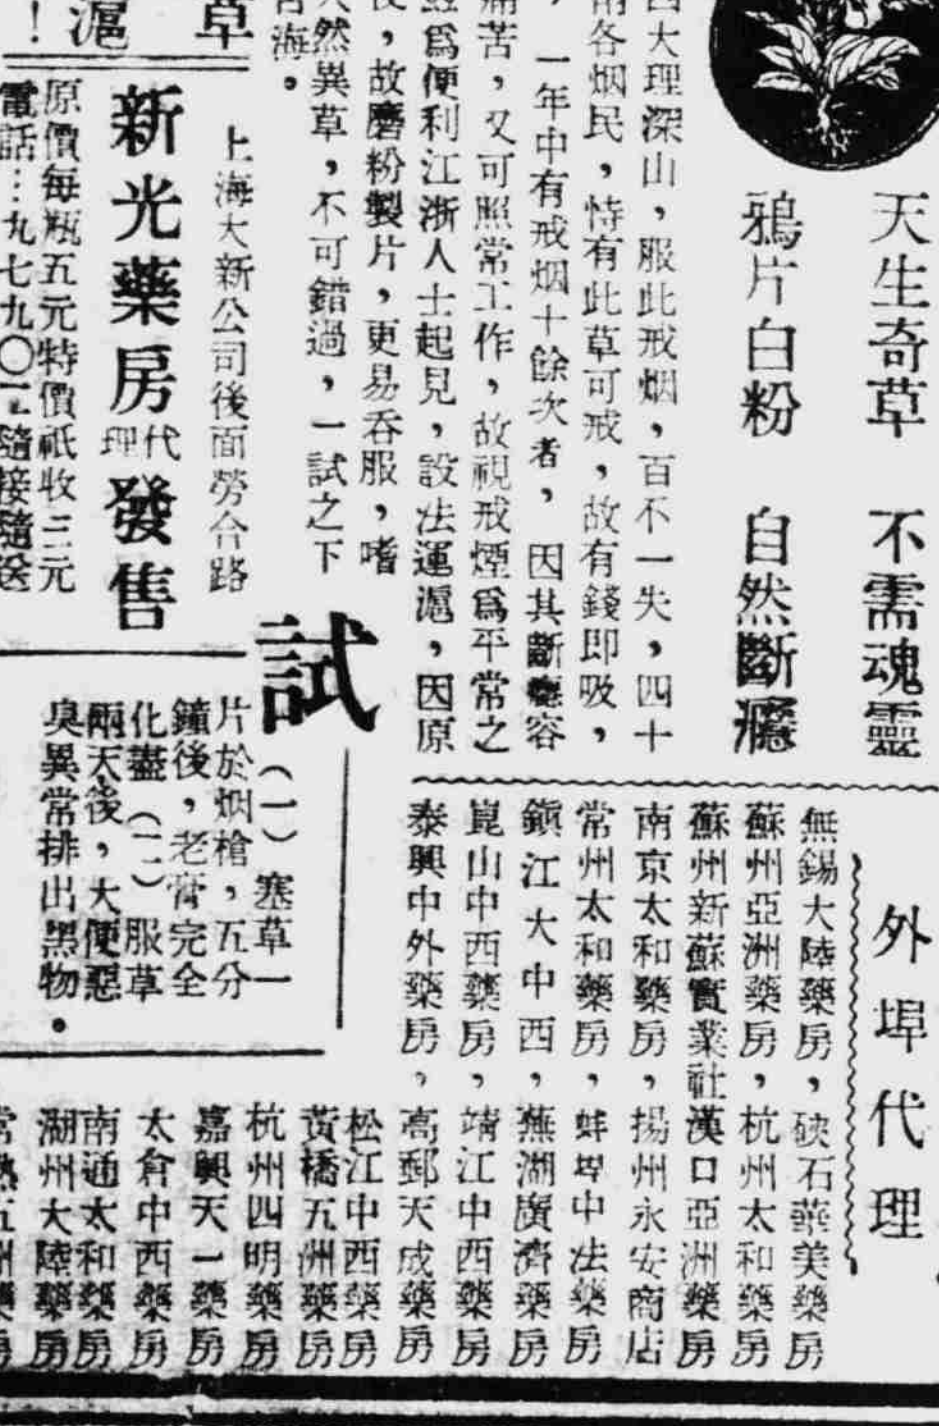 天生奇草　不需魂靈
鴉片白粉　自然斷癮
大理深山，服此戒烟，百不一失，四十
各烟民，恃有此草可戒，故有錢即吸，
，一年中有戒烟十餘次者，因其斷癮容
苦，又可照常工作，故視戒煙爲平常之
爲便利江浙人士起見，設法運滬，因原
，故磨粉製片，更易吞服，嗜
然異草，不可錯過，一試之下
海。
草
滬
！
上海大新公司後面勞合路
新光藥房代理發售
原價每瓶五元特價祇收三元
電話：九七九〇二隨接隨送
試
（一）塞草一
片於烟槍，五分
鐘後，老膏完全
化盡（二）服草
兩天後，大便惡
臭異常排出黑物。
外埠代理
無錫大陸藥房，硤石華美藥房
蘇州亞洲藥房，杭州太和藥房
蘇州新蘇實業社漢口亞洲藥房
南京太和藥房，揚州永安商店
常州太和藥房，蚌埠中法藥房
鎭江大中西，蕪湖廣濟藥房
崑山中西藥房，靖江中西藥房
泰興中外藥房，高郵天成藥房
松江中西藥房
黃橋五洲藥房
杭州四明藥房
嘉興天一藥房
太倉中西藥房
南通太和藥房
湖州大陸藥房